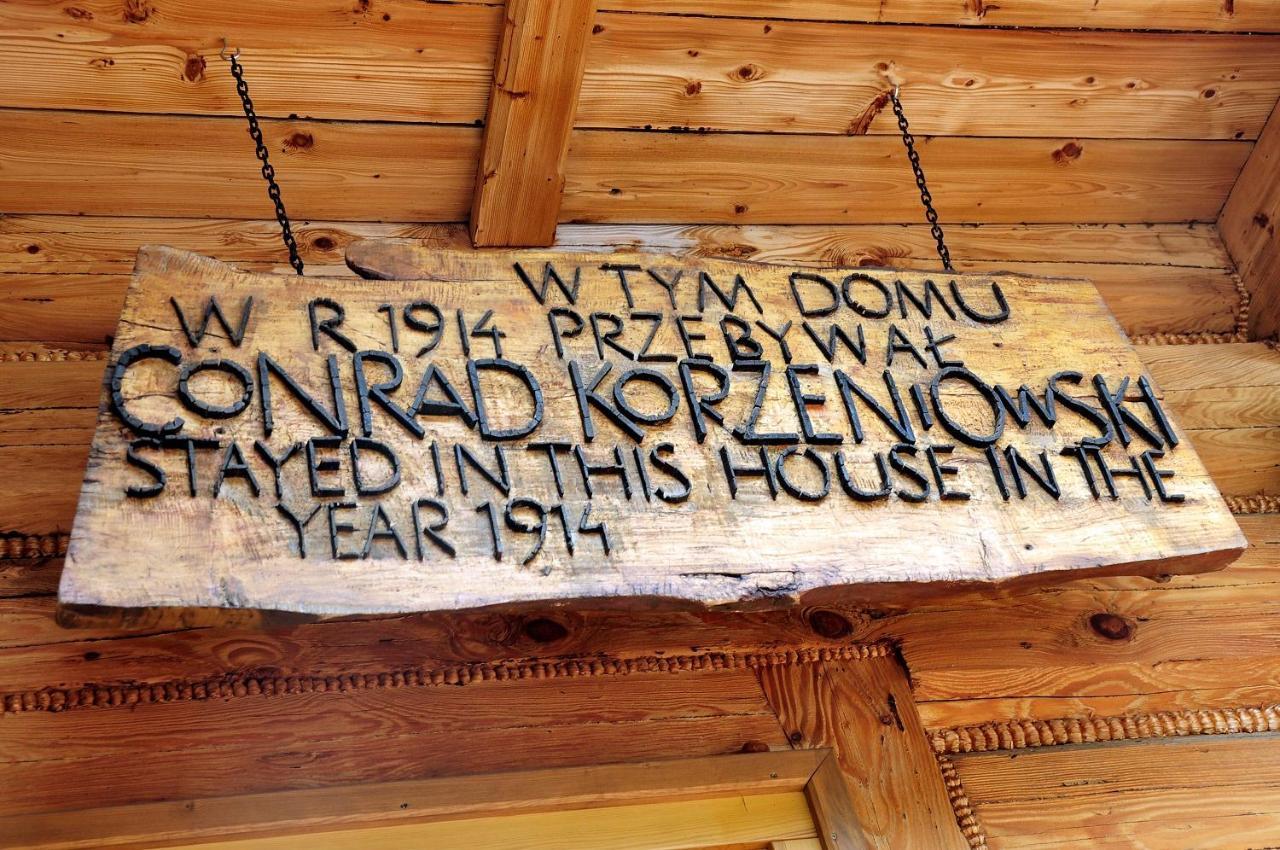 W TYM DOMU
W R 1914 PRZEBYWAŁ
CONRAD KORZENIOWSKI
STAYED IN THIS HOUSE IN THE
YEAR 1914